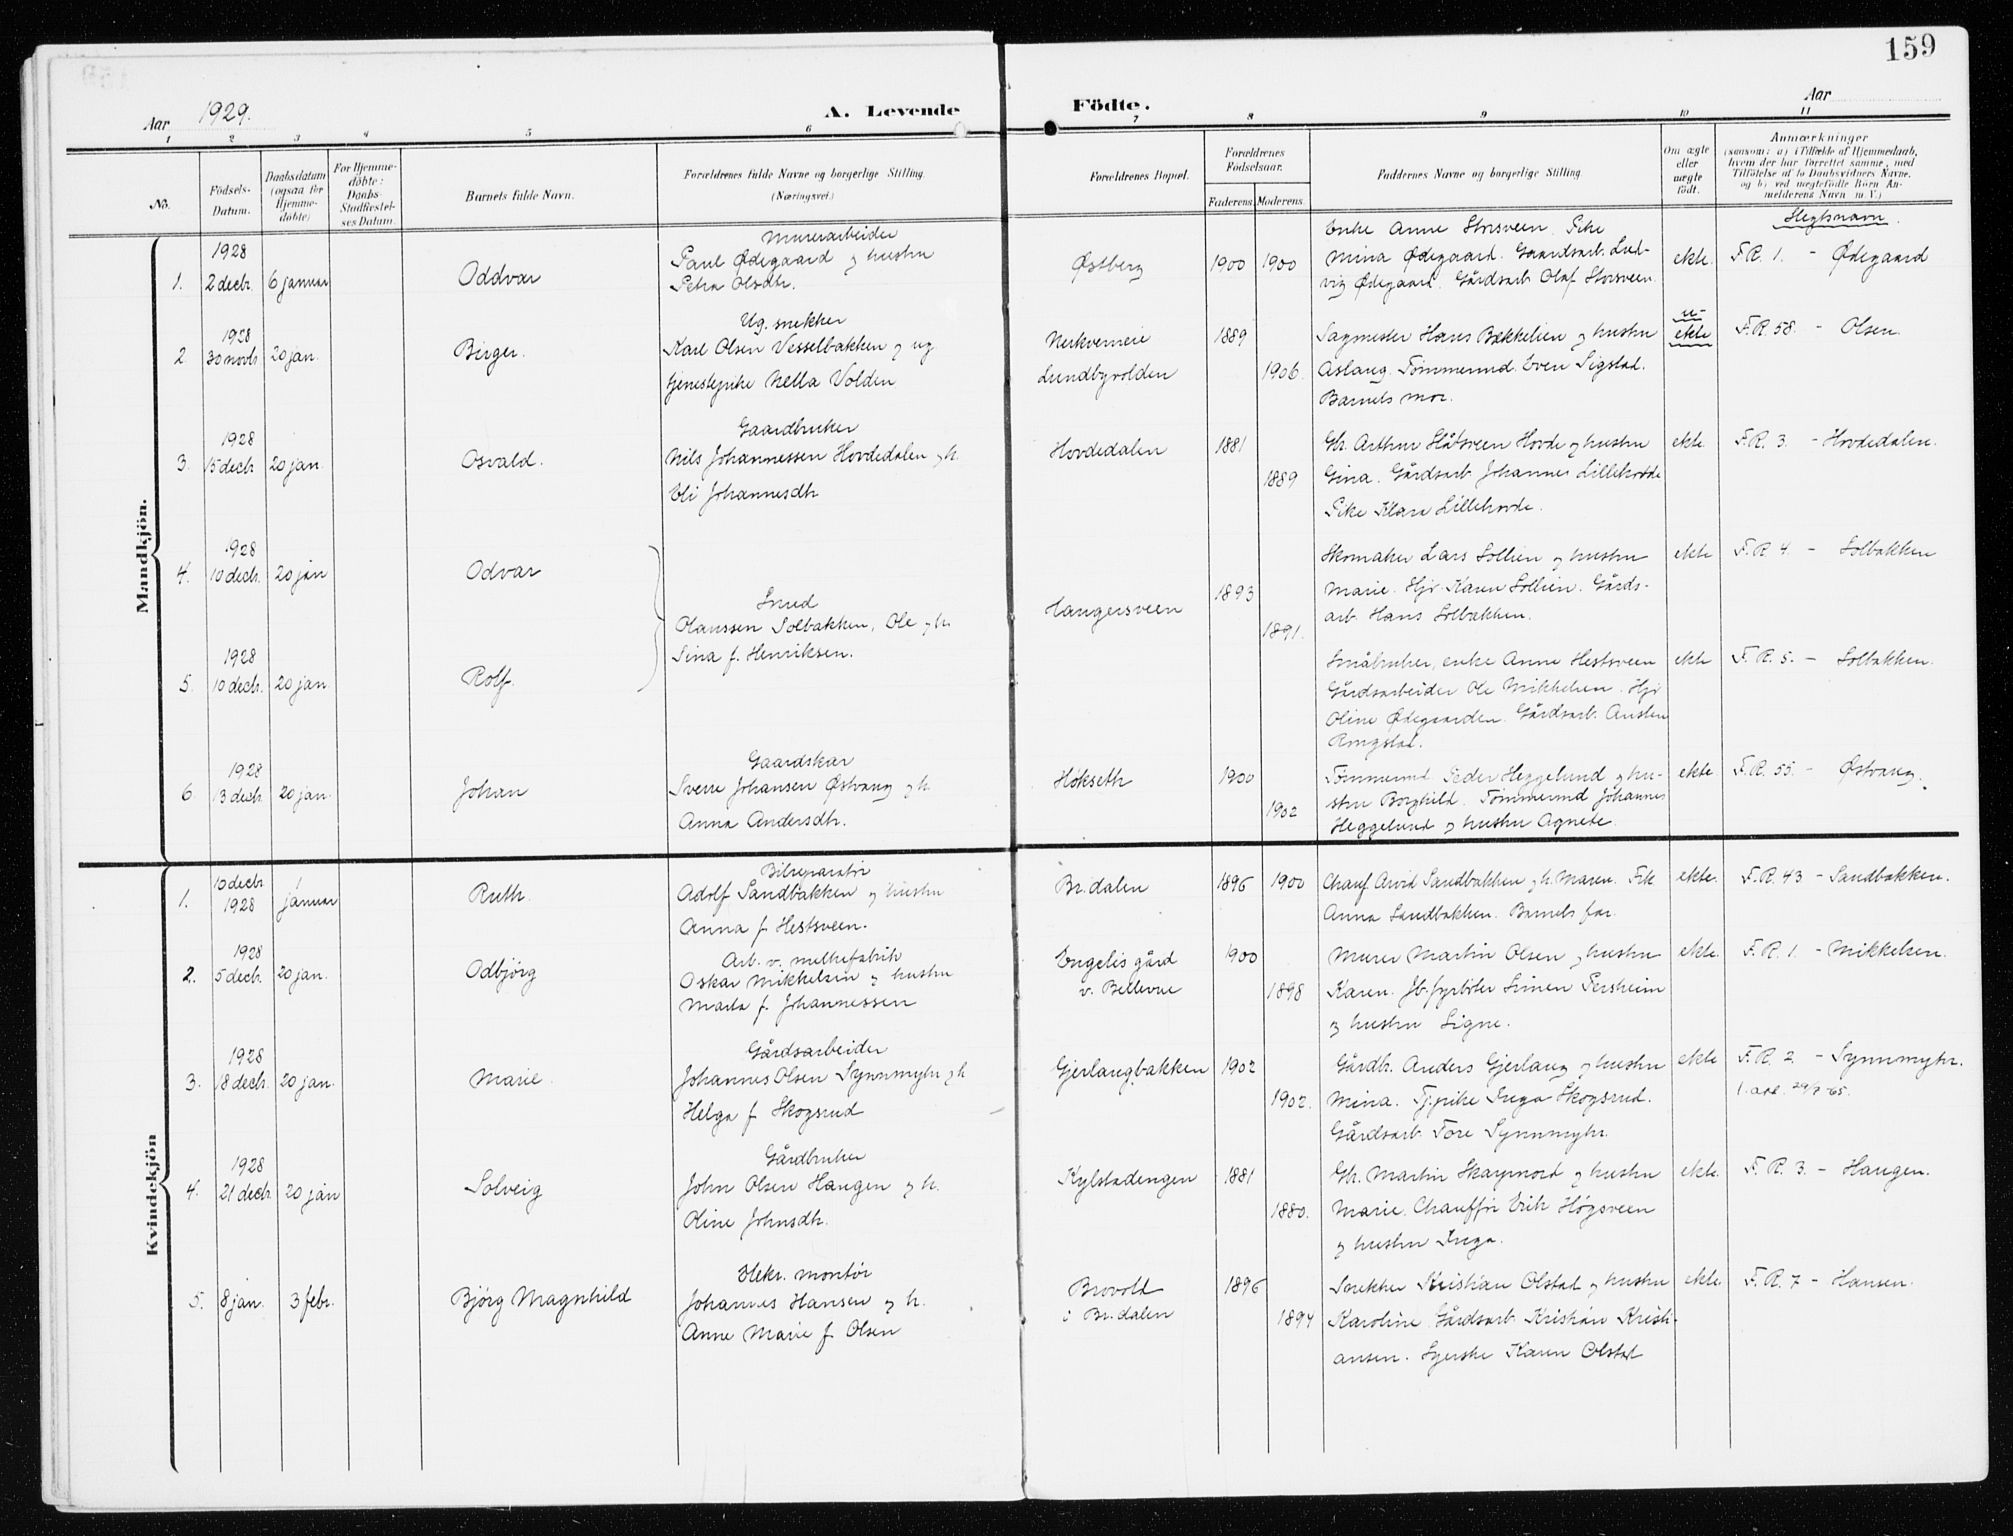 159
Aar 1929.
A. Levende Födte.
Aar
1 2 3 4 5 6 7 8 9 10 11
No.
Födsels-Datum.
Daabsdatum (ogsaa for Hjemme-döbte)
For Hjemme-döbte: Daabs-Stadfæstel-ses Datum.
Barnets fulde Navn.
Forældrenes fulde Navne og borgerlige Stilling. (Næringsvei.)
Forældrenes Bopæl.
Forældrenes Födselsaar.
Faderens Moderens
Faddernes Navne og borgerlige Stilling.
Om ægte eller uægte födt.
Anmærkninger
(saasom: a) i Tilfælde af Hjemmedaab,
hvem der har forrettet samme, med
Tilföielse af to Daabsvidners Navne.
og b) ved uegtefödte Börn An-
melderens Navn m V.)
Slegtsnavn.
Mandkjön.
1. 1928 2 decbr. 6 januar
Oddvar
Murerarbeider
Paul Ødegaard og hustru
Petra Olsdtr.
Østberg
1900 1900
Enke Anne Storsveen. Pike
Mina Ødegaard. Gaardsarb. Lud-
vig Ødegaard. Gårdsarb Olaf Storsveen.
ekte.
F.R. 1. - Ødegaard
2 1928 30 novbr 20 jan.
Birger.
Ug. snekker
Karl Olsen Vesselbakken og ug
tjenestepike Nella Volden
Nerkverneie
Lundbyvolden
1889
1906.
Sagmester Hans Bækkelien og hustru
Aslaug. Tømmermd. Even Sigstad.
Barnets mor.
u-
ekte
F.R. 58. - Olsen.
3. 1928 15 decbr 20 jan.
Osvald.
Gaardbruker
Nils Johannessen Hovdedalen og h.
Eli Johannesdtr
Hovdedalen
1881
1889
Gbr. Arthur Slåtsveen Hovde og hustru
Gina. Gårdsarb. Johannes Lillehovde
Pike Klara Lillehovde.
ekte.
F.R. 3. - Hovdedalen.
4. 1928 10 decbr. 20 jan
Odvar
Smed
Olaussen Solbakken, Ole og h.
Sina f. Henriksen.
Haugersveen
1893
1891.
Skomaker Lars Sollien og hustru
Marie. Hjv. Karen Sollien. Gårds-
arb. Hans Solbakken.
ekte
F.R. 4. - Solbakken
5. 1928 10 decbr. 20 jan
Rolf.
Småbruker, enke Anne Hestsveen
Gårdsarbeider Ole Mikkelsen. Hjv
Oline Ødegaarden. Gårdsarb. Austen
Ringstad.
ekte
F.R. 5. - Solbakken.
6 1928 13 decbr. 20 jan.
Johan
Gaardskar
Sverre Johansen Østvang og h.
Anna Andersdtr.
Høkseth
1900
1902
Tømmermd. Peder Heggelund og hu-
stru Borghild. Tømmermd Johannes
Heggelund og hustru Agnete.
ekte
F.R. 55. - Østvang.
Kvindekjön
1. 10 decbr 1928 1 januar
Ruth.
Bilreparatør
Adolf Sandbakken og hustru
Anna f. Hestsveen.
Br.dalen
1896 1900
Chauf. Arvid Sandbakken og h. Maren. Pik
Anna Sandbakken. Barnets far.
ekte.
F.R. 43 - Sandbakken.
2. 1928 5 decbr. 20 jan.
Odbjörg
Arb. v. melkefabrik
Oskar Mikkelsen og hustru
Marta f. Johannessen
Engelis gård
v. Bellevue
1900
1898
Murer Martin Olsen og hustru
Karen. Jb.fyrböter Simen Persheim
og hustru Signe.
ekte.
F.R. 1. - Mikkelsen.
3. 1928 18 decbr. 20 jan.
Marie.
Gårdsarbeider
Johannes Olsen Synnmyhr og h
Helga f. Skogsrud
Gjerlaugbakken
1902
1902.
Gårdbr. Anders Gjerlaug og hustru
Mina. Tj.pike Inga Skogsrud.
Gårdsarb. Tore Synnmyhr.
ekte
F.R. 2 - Synnmyhr.
1. att. 29/7-65.
4. 1928 21 decbr. 20 jan
Solveig
Gårdbruker
John Olsen Haugen og h.
Oline Johnsdtr.
Kylstadengen
1881
1880.
Gbr. Martin Skaymord og hustru
Marie. Chauffør Erik Høgsveen
og hustru Inga.
ekte.
F.R. 3. - Haugen.
5. 8 jan. 3 febr.
Bjørg Magnhild
Elekr. montør
Johannes Hansen og h.
Anne Marie f. Olsen
Brovold
i Br.dalen
1896
1894
Snekker Kristian Olstad og hustru
Karoline. Gårdsarb Kristian Kristi-
ansen. Syerske Karen Olstad
ekte.
F.R. 7 - Hansen.